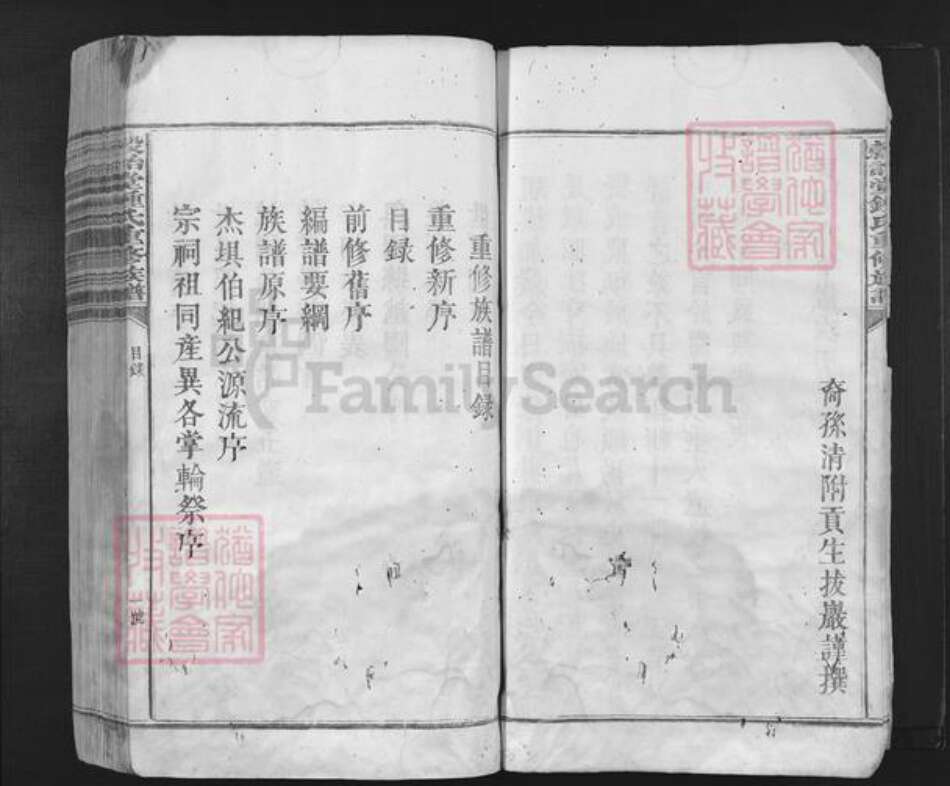 裔孫清附貢生拔巖謹撰
重修族譜目録
重修新序
目録
前修舊序
編譜要綱
族譜原序
杰垻伯紀公源流序
宗祠祖同産異各掌輪祭序
目録
一號
譜學會
收藏
譜學會
收藏
FamilySearch